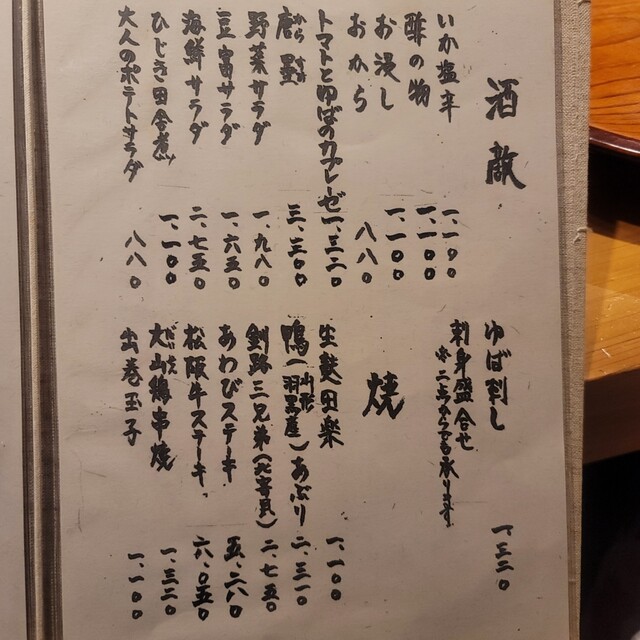 酒敵
いか塩辛 一、一〇〇
酢の物 一、一〇〇
お浸し 一、一〇〇
おから 八八〇
トマトとゆばのカプレーゼ 一、三二〇
唐墨 三、三〇〇
からすみ
野菜サラダ 一、九八〇
豆富サラダ 一、六五〇
海鮮サラダ 二、七五〇
ひじき田舎煮 一、一〇〇
大人のポテトサラダ 八八〇
ゆば刺し 一、三二〇
刺身盛合せ
※二点からでも承ります
焼
生麩田楽 一、一〇〇
鴨(山形羽黒産)あぶり 二、三一〇
釧路三兄弟(北寄貝) 二、七五〇
あわびステーキ 五、二八〇
松阪牛ステーキ 六、〇五〇
大山鶏串焼 一、三二〇
だいせん
出巻玉子 一、一〇〇